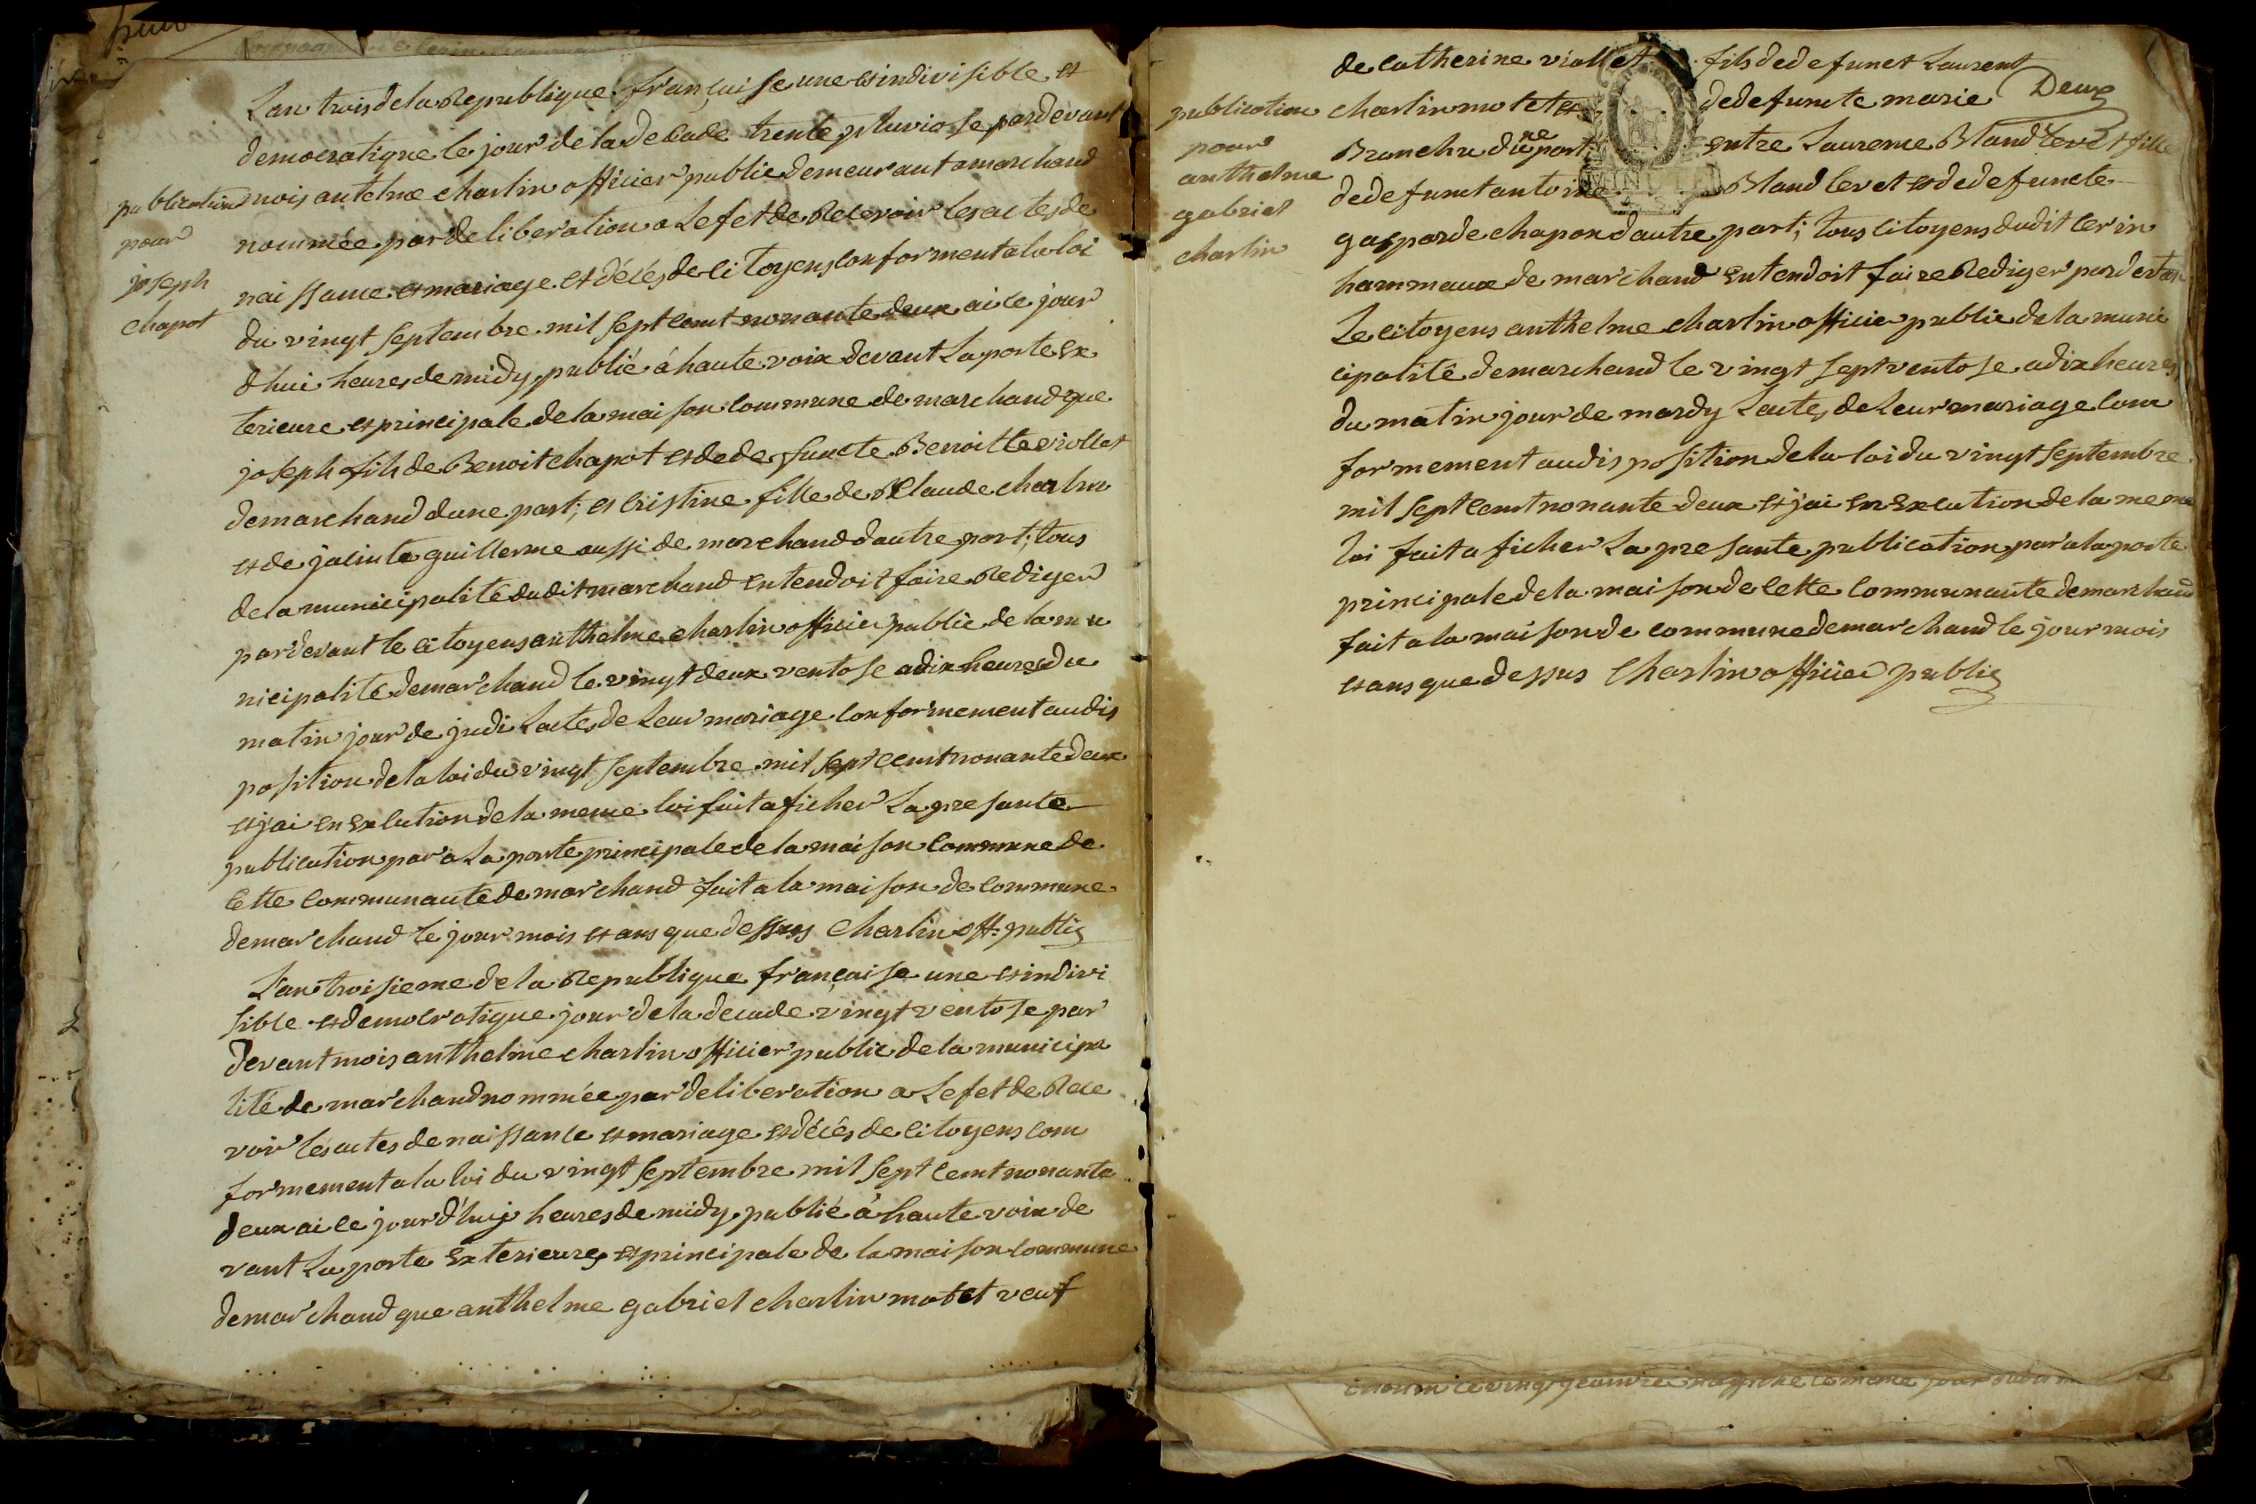 L'an trois de la Republique françaisse une et indivisible et
democratique le jour de la decade trente pluviose pardevant
mois antelme charlin officier public demeurant a marchand
nommée par deliberation a Lefet de Recevoir les actes de
naissance et mariage et décés de citoyens conforment a la loi
du vingt septembre mil sept cent nonante deux ai ce jour
dhui heures de midy publié á haute voix devant La porte ex
terieure et principale de la maison commune de marchand que
joseph fils de Benoit chapot et de defuncte Benoitte viollet
de marchand dune part; et Cristine fille de Claude charlin
et de jacinte guillerme aussi de marchand dautre part; tous
de la municipalité dudit marchand entendoit faire Rediger
pardevant le citoyens anthelme charlin officier public de la mu
nicipalité de marchand le vingt deux ventose a dix heures du
matin jour de judi Lactes de Leur mariage conformement au dis
position de la loi du vingt septembre mil sept cent nonante deux
et j'ai en exécution de la meme loi fait aficher La presante
publication par a La porte principale de la maison commune de
cette communauté de marchand fait a la maison de commune
de marchand le jour mois et ans que dessus Charlin off: public
publication
pour
joseph
chapot
L'an troisieme de la Republique française une et indivi
sible et democratique jour de la decade vingt ventose par
devant mois anthelme charlin officier public de la municipa
lité de marchand nommée par deliberation a Lefet de Rece
voir les actes de naissance et mariage et décés de citoyens con
formement a la loi du vingt septembre mil sept cent nonante
deux ai ce jour d'huy heures de midy publié á haute voix de
vant La porte exterieure et principale de la maison commune
de marchand que anthelme gabriel charlin motet veuf
Deux
de catherine viollet fils de defunct Laurent
charlin motet et de defuncte marie
Branche dune part; entre Laurence Bland levet fille
de defunct antoine Bland levet et de defuncte
gasparde chapon dautre part; tous citoyens dudit cerin
hammeaux de marchand entendoit faire Rediger pardevan
Le citoyens anthelme charlin officie public de la muni
cipalité de marchand le vingt sept ventose a dix heures
du matin jour de mardy Lactes de Leur mariage con
formement au disposition de la loi du vingt septembre
mil sept cent nonante deux et j'ai en execution de la meme
loi fait aficher La presante publication par a la porte
principale de la maison de cette communauté de marchand
fait a la maison de commune de marchand le jour mois
et ans que dessus Charlin officier public
publication
pour
anthelme
gabriel
charlin